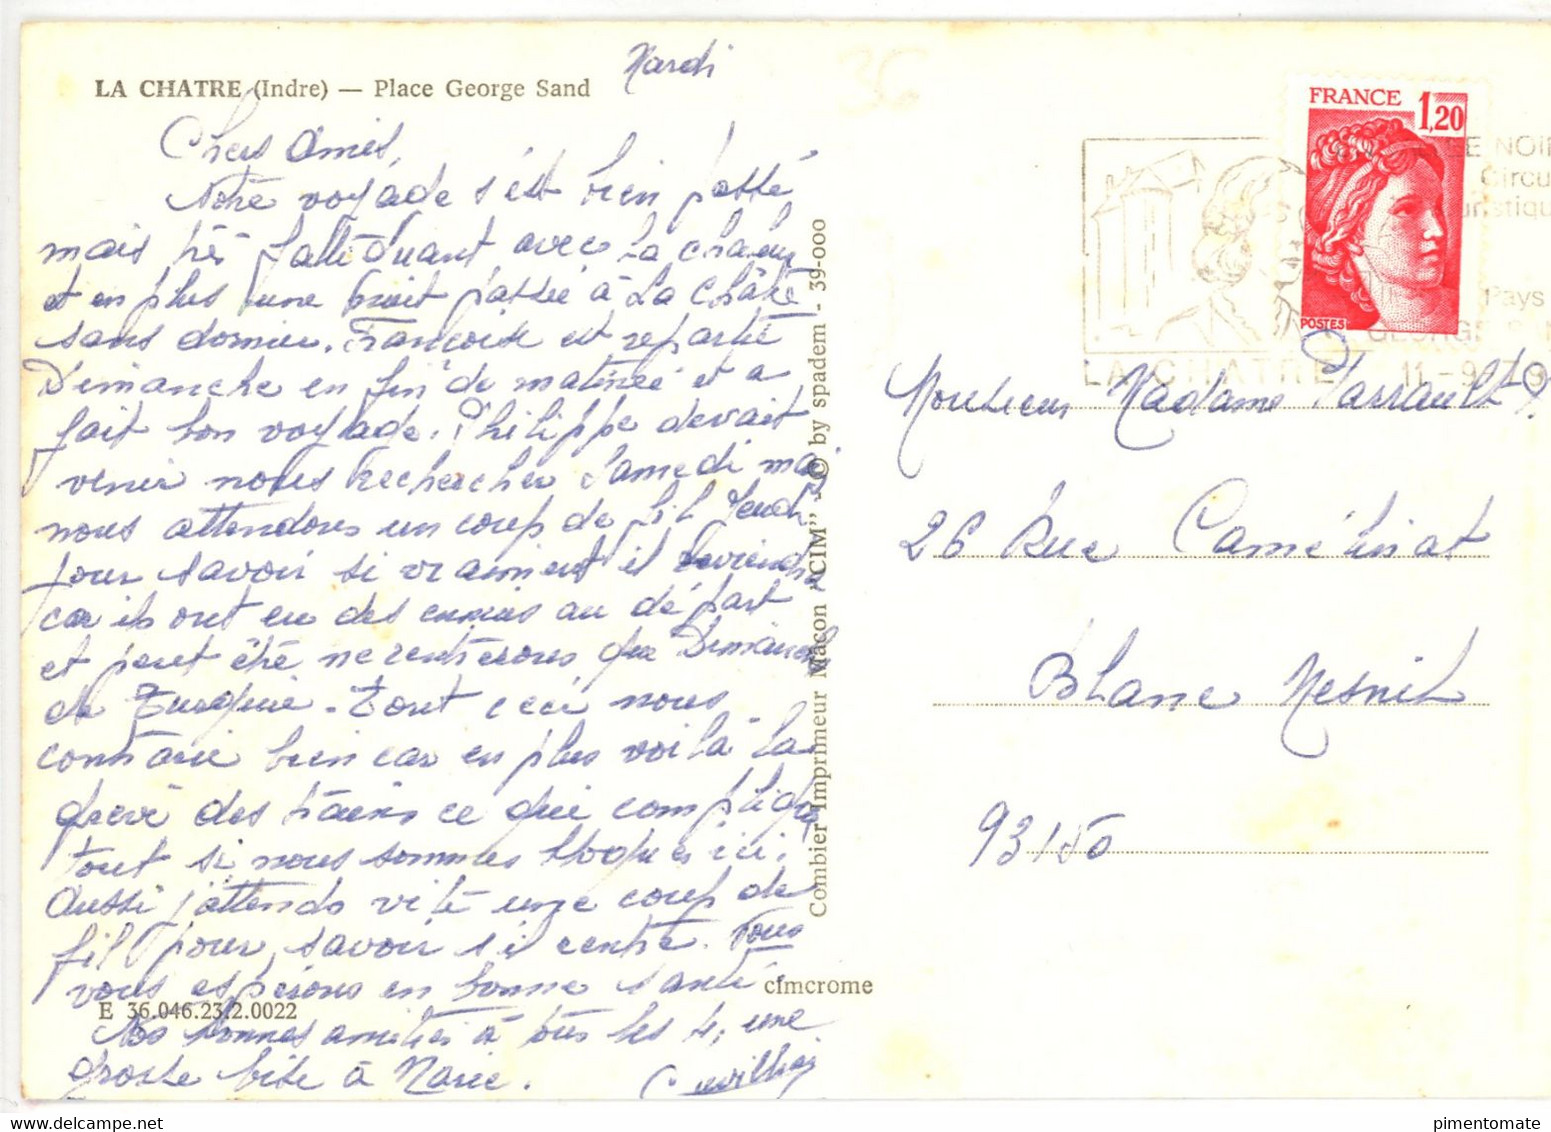 Mardi
LA CHATRE (Indre) — Place George Sand
Chers Amis,
Notre voyage s'est bien passé
mais très fattiguant avec la chaleur
et en plus une nuit passée à La Châtre
sans dormir. Françoise est repartie
Dimanche en fin de matinée et a
fait bon voyage. Philippe devait
venir nous rechercher Samedi mais
nous attendons un coup de fil Jeudi
pour savoir si vraiment il
car ils ont eu des ennuis au départ
et peut être ne rentrerons que Dimanche
de Turquie. Tout ceci nous
contrarie bien car en plus voilà la
grève des trains ce qui complique
tout si nous sommes bloqués ici.
Aussi j'attends vite une coup de
fil pour savoir s'il rentre. Tous
vous espérons en bonne santé
Nos bonnes amitiés à tous les 4, une
grosse bise à Marie.
E 36.046.23.2.0022
cimcrome
Combier Imprimeur Macon "CIM" - © by spadem - 39-000
FRANCE 1,20
POSTES
NOI
Circu
uristiqu
Pays
GEORGE
LA CHATRE
11-9
Monsieur Madame Parrault
26 Rue Camélinat
Blanc Mesnil
93150
pimentomate